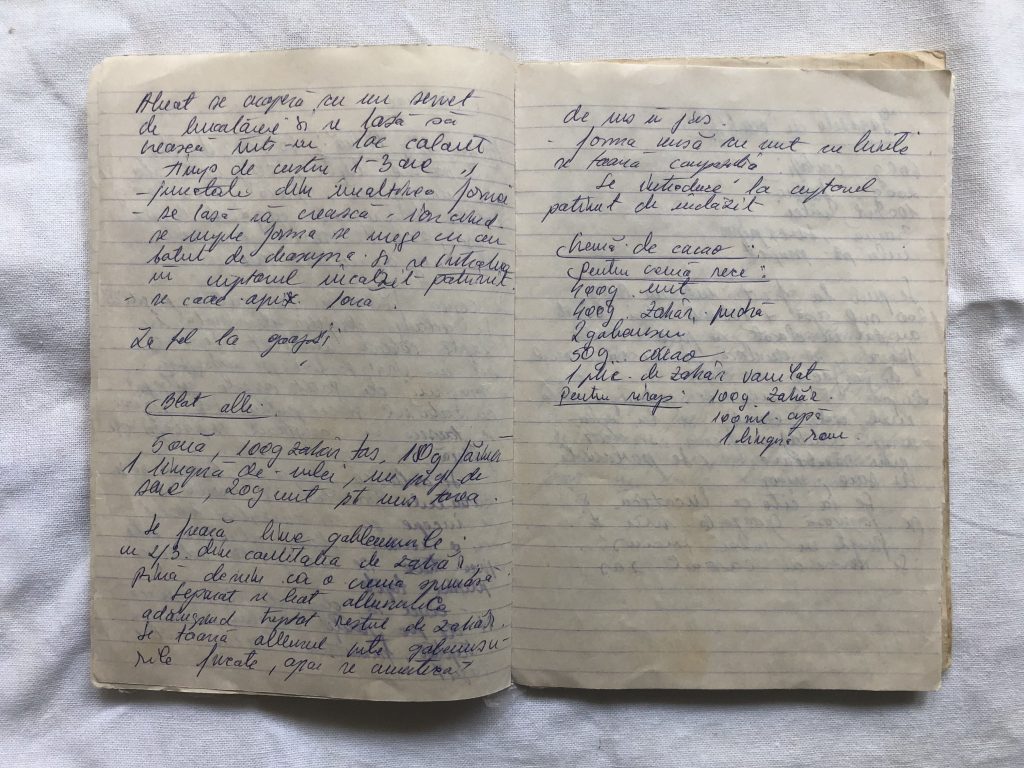 Aluat se acoperă cu un servet
de bucatărie și se lasă să
crească într-un loc calduț
Timp de 1-3 ore
- jumatate din înaltimea formei
- se lasă să crească
se umple forma se unge cu ou
batut de deasupra și se introduce
în cuptorul încalzit potrivit.
se coace apix 1ora.
La fel la
Blat alb.
5ouă, 100g zahăr tos, 100g făină
1 lingură de ulei, un praf de
sare, 20g unt pt uns tava.
Se freacă bine gabenusurile
în 2/3 din cantitatea de zahăr
pînă devine ca o cremă spumoasă
Separat se bat albusurile
adăugînd treptat restul de zahăr.
Se toarnă albusul peste gabenusu-
rile frecate, apoi se amestecă
de sus în jos.
- forma unsă cu unt
se toarnă compozitia
Se introduce la cuptorul
potrivit de încălzit
Cremă de cacao:
Pentru cremă rece:
400g. unt
400g. zahăr pudră
2 gabenusuri
50g. cacao
1 plic. de zahăr vanilat
Pentru sirop: 100g zahăr.
100ml. apă
1 lingură rom